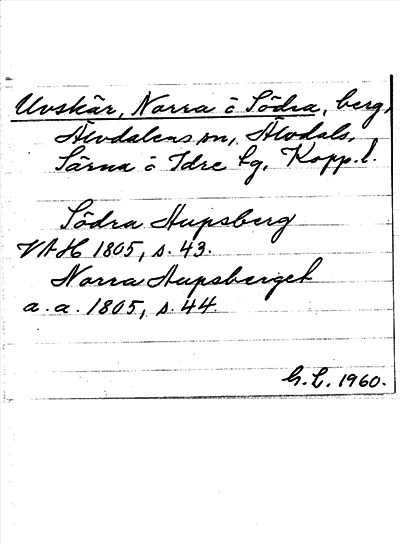 Uvskär, Norra o Södra, berg,
Älvdalens sn, Älvdals,
Särna o Idre tg, Kopp. l.
Södra Hupsberg
VAH 1805, s. 43.
Norra Hupsberget
a. a. 1805, s. 44.
G. L. 1960.